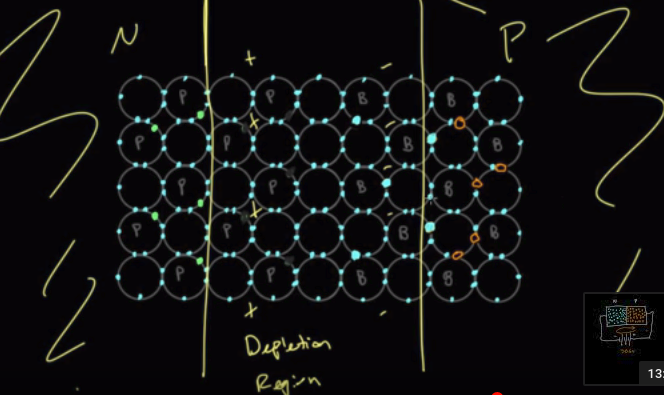 N P
+ -
P P B B
+ -
P P B B
-
P P B B
+ -
P P B B
P P B B
+ -
Depletion
Region
N P
13: